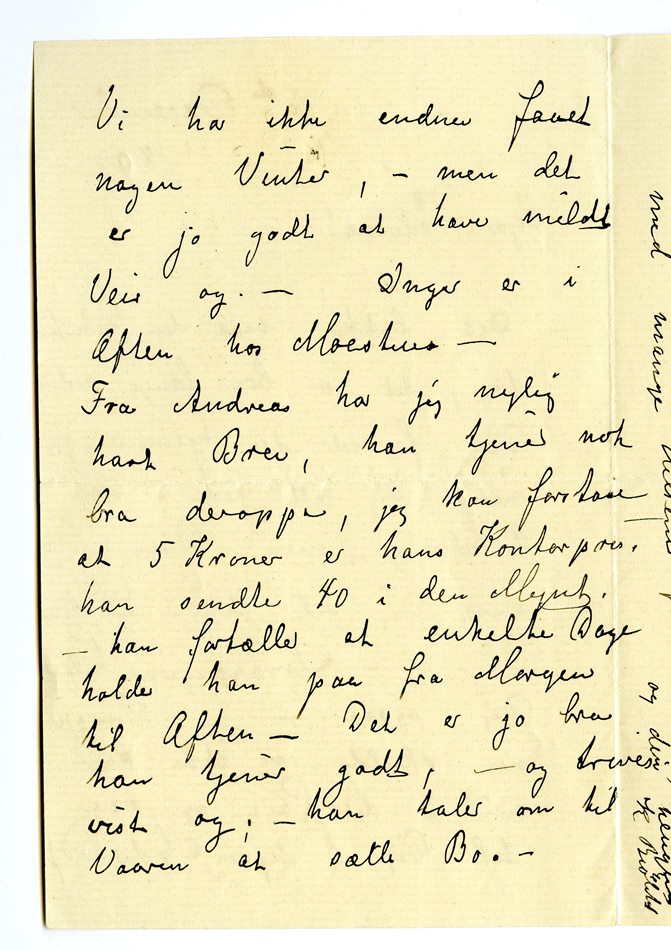 Vi ha ikke endnu faaet
nogen Vinter, – men det
er jo godt at have mildt
Veir og. – Inger er i
Aften hos Moestues –
Fra Andreas har jeg nylig
havt Brev, han tjener nok
bra deroppe, jeg kan forstaae
at 5 Kroner er hans Kontorpris.
han sendte 40 i den Mynt.
– han fortæller at enkelte Dage
holder han paa fra Morgen
til Aften – Det er jo bra
han tjener godt, – og trives
vist og, – han taler om til
Vaaren at sætte Bo. –
med mange
og din